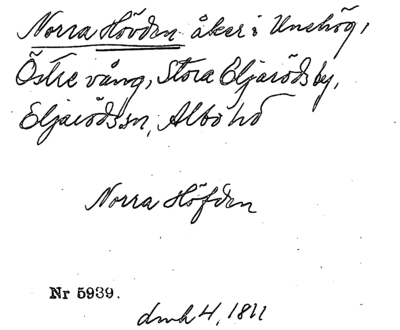 Norra Hövden åker i Unshög,
Östre vång, Stora Eljarödsby,
Eljarödssn, Albo hd
Norra Höfden
Nr 5939.
dmh 4, 1811